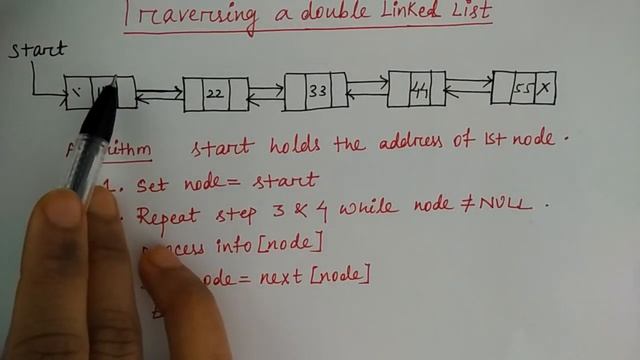 Traversing a double Linked List
start
22 33 44 55 X
start holds the address of 1st node.
1. Set node = start
Repeat step 3 & 4 while node ≠ NULL.
info [node]
node = next [node]